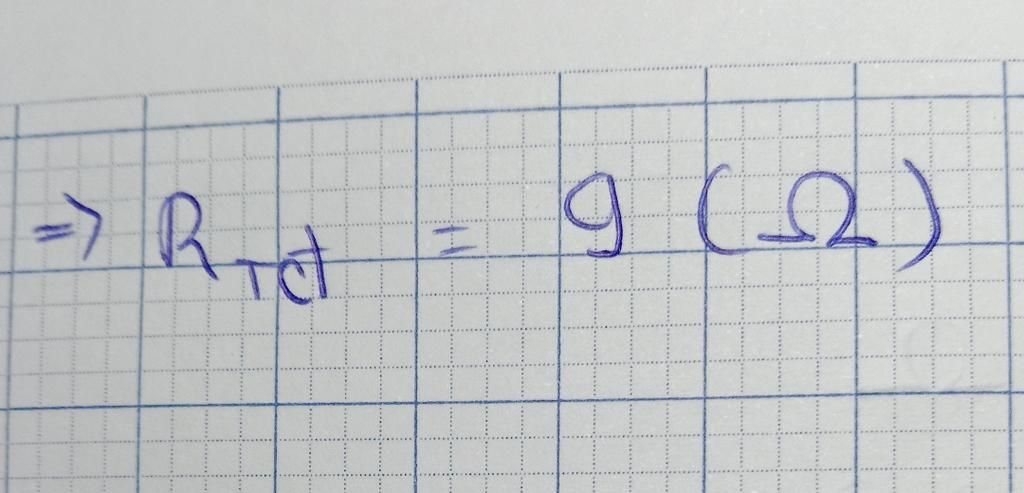 => R_Tđ = 9 (Ω)